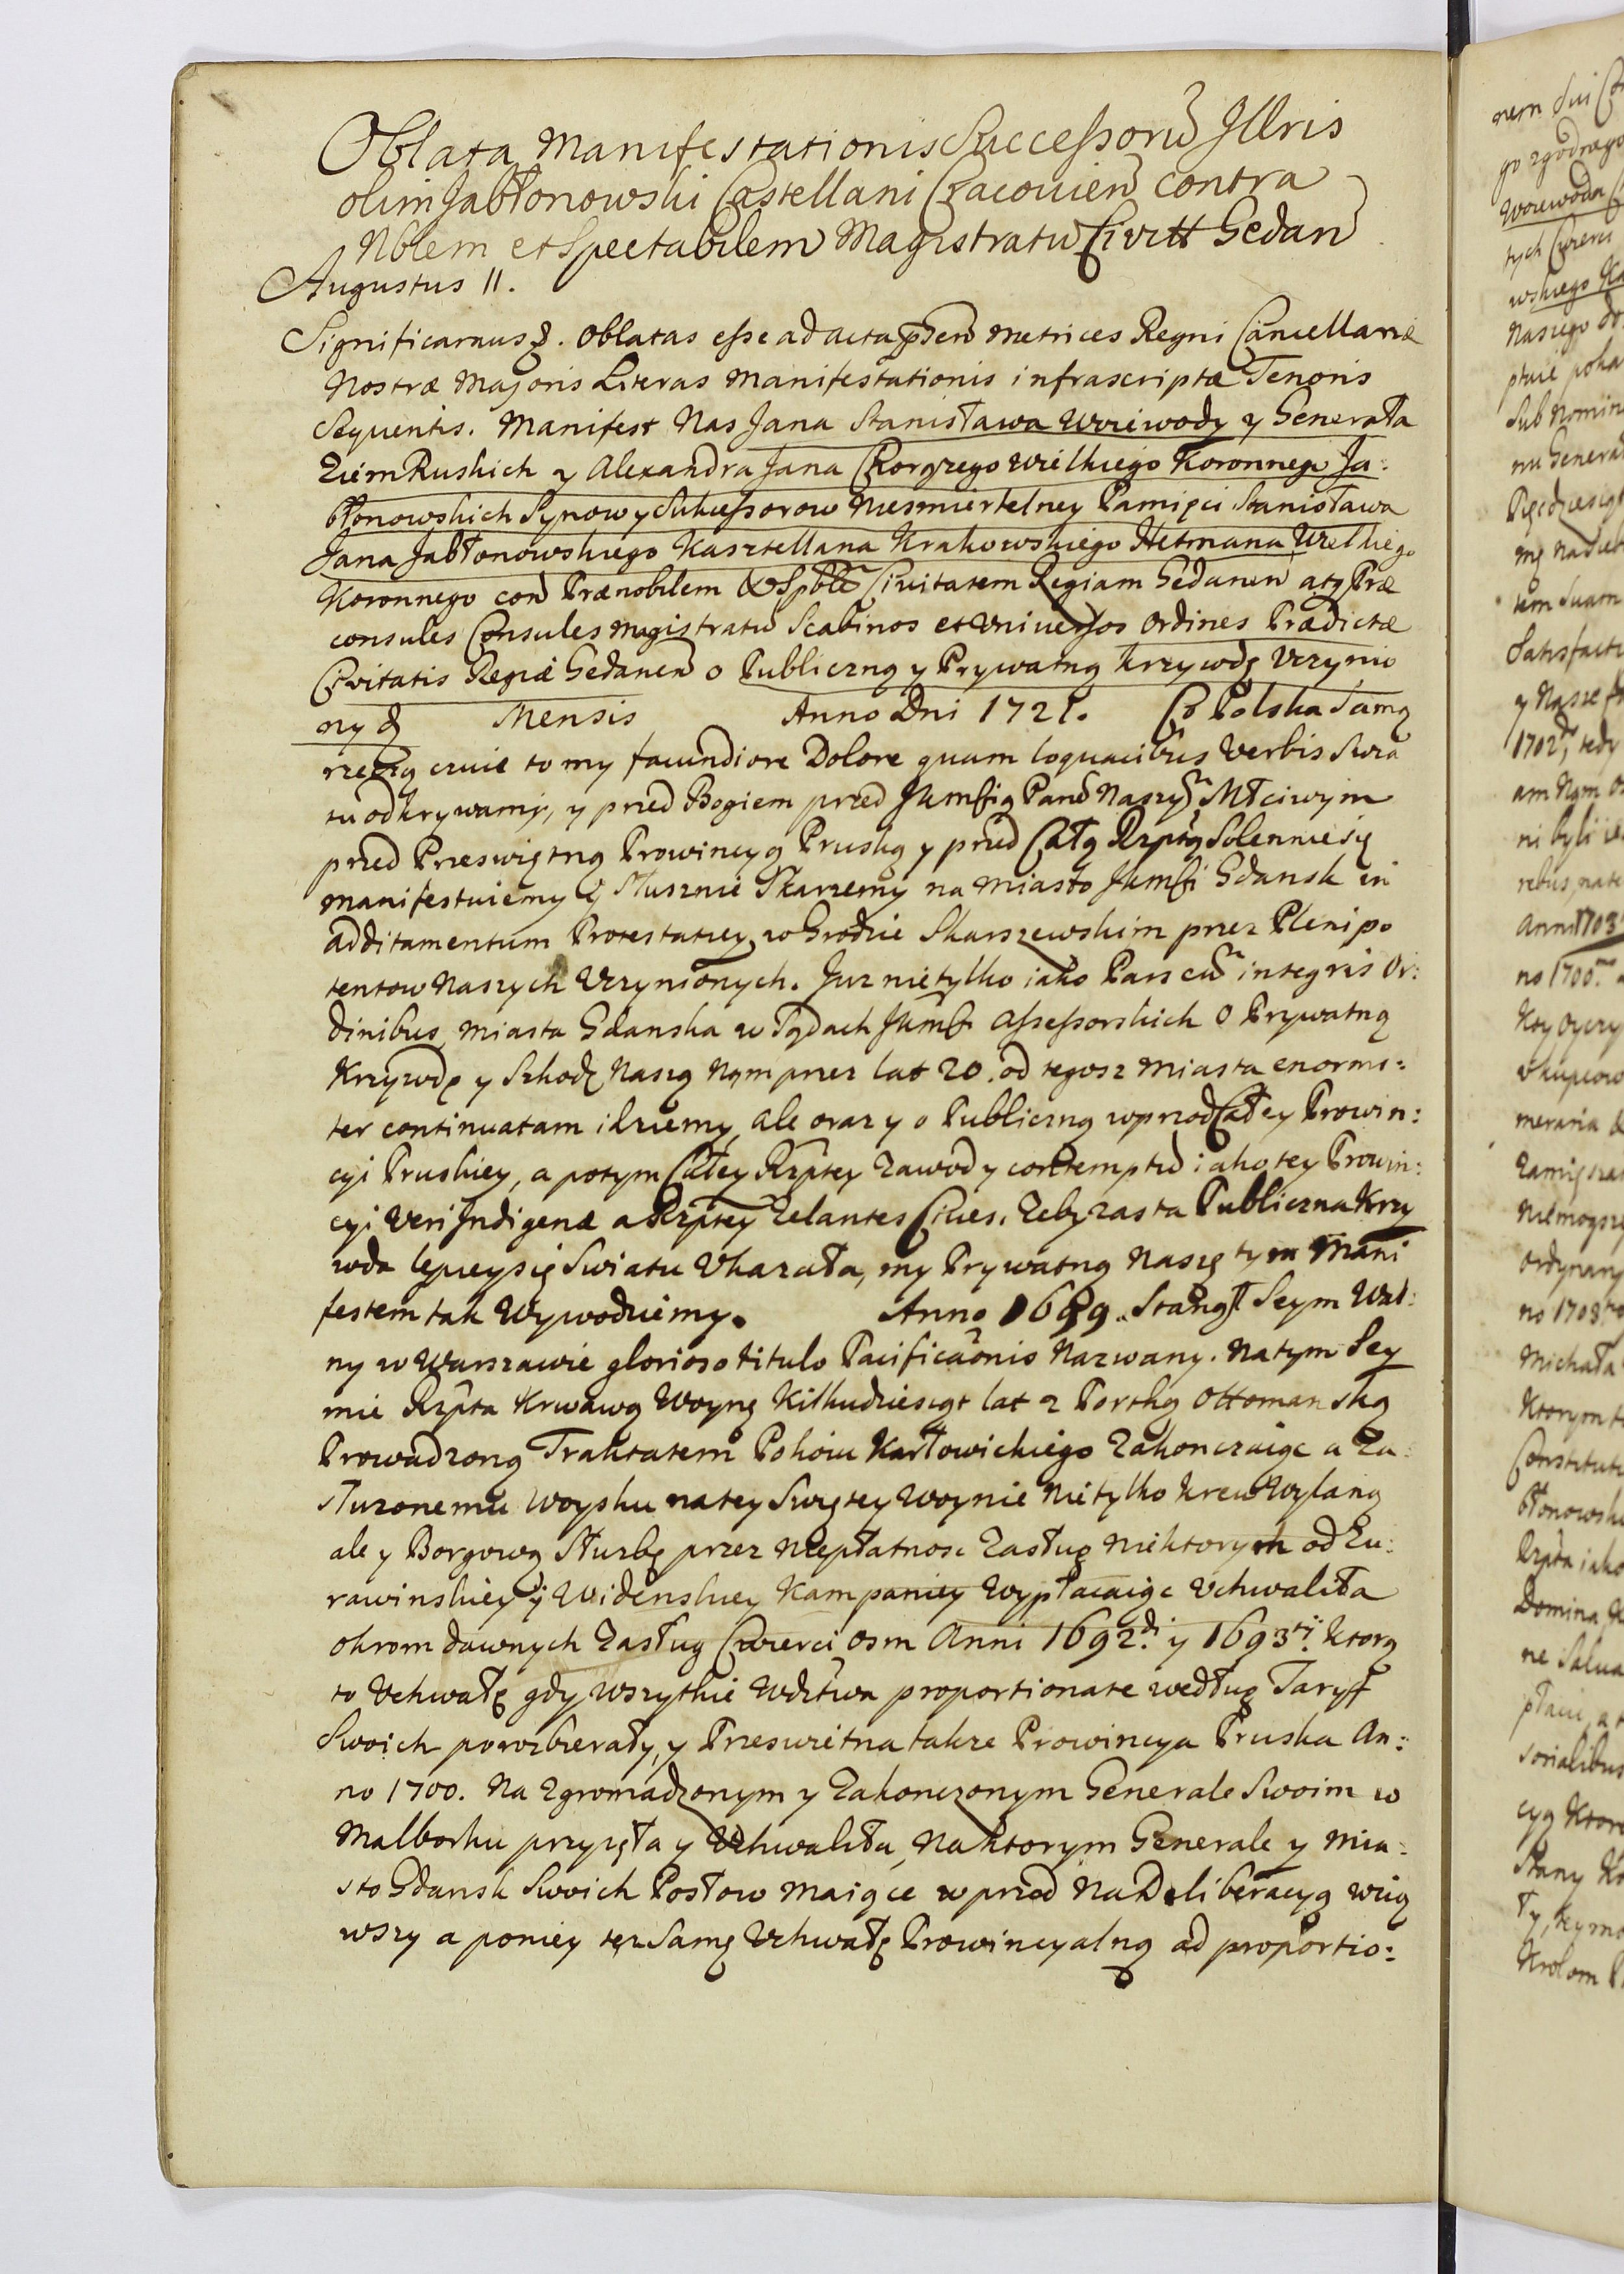 Oblata Manifestationis Successorũ Jllris
olim Jabłonowski Castellani Cracovień contra
Nblem et Spectabilem Magistratũ Civitt Gedań
Augustus II.
Significamus &. Oblatas esse ad acta pñteñ Metrices Regni Cancellariæ
Nostræ Majoris Literas Manifestationis infrascriptæ Tenoris
Sequentis. Manifest Nas Jana Stanisława Woiewody y Generała
Ziem Ruskich y Alexandra Jana Chorązego Wielkiego Koronnego Ja:
błonowskich Synow y Sukcessorow Niesmiertelney Pamięci Stanisława
Jana Jabłonowskiego Kasztellana Krakowskiego Hetmana Wielkiego
Koronnego con Prænobilem & Spblẽ Civitatem Regiam Gedaneñ atq Præ
consules Consules Magistratũ Scabinos et Universos Ordines Prædictæ
Civitatis Regiæ Gedaneñ o Publiczną y Prywatną krzywdę Vczynio
ny d Mensis Anno Dni 1721. Co Polska Samą
rzeczą czuie to my facundiore Dolore quam loquacibus Verbis Swia
tu odkrywamy, y przed Bogiem przed Jkmścią Panẽ Naszỹm Młciwym
przed Przeswiętną Prowincyą Pruską y przed Całą Rzptą Solennie się
manifestuiemy y Słusznie Skarzemy na Miasto Jkmści Gdansk in
additamentum Protestacyey w Grodzie Skarszewskim przez Plenipo
tentow Naszych Vczynionych. Juz nie tylko iako Pars cũ integris Or:
dinibus Miasta Gdanska w Sądach Jkmści Assessorskich o Prywatną
Krzywdę y Szkodę Naszą Nam przez lat 20. od tegosz Miasta enormi:
ter continuatam idziemy, ale oraz y o Publiczną wprzod Całey Prowin:
cyi Pruskiey, a potym Całey Rzptey Zawod y contemptũ iako tey Prowin:
cyi Veri Jndigenæ a Rzptey Zelantes Cives. Zeby zas ta Publiczna Krzy
wda lepiey się Swiatu Vkazała, my Prywatną Naszę tym Mani
festem tak Wywodziemy. Anno 1699. Stanął Seym Wal:
ny w Warszawie glorioso titulo Pacificãonis Nazwany. Na tym Sey
mie Rzpta Krwawą Woynę Kilkudziesiąt lat z Portką Ottomanską
Prowadzoną Traktatem Pokoiu Karłowickiego Zakonczaiąc a Za
słuzonemu Woysku na tey Swiętey Woynie Nie tylko krew Wylaną
ale y Borgową Służbę przez Niepłatnosc Zasług Niektorych od Zu:
rawinskiey y Widenskiey Kampaniey Wypłacaiąc Vchwaliła
okrom dawnych Zasług Cwierci osm Anni 1692di y 1693tij. Ktorą
to Vchwałę gdy Wszytkie Wdztwa proportionate według Taryff
Swoich porozbierały, y Przeswietna takze Prowincya Pruska An:
no 1700. Na Zgromadzonym y Zakonczonym Generale Swoim w
Malborku przyięła y Vchwaliła, Na ktorym Generale y Mia:
sto Gdansk Swoich Posłow Maiące wprzod Na Deliberacyą wzią
wszy a poniey tęz Samę Vchwałę Prowincyalną ad proportio: